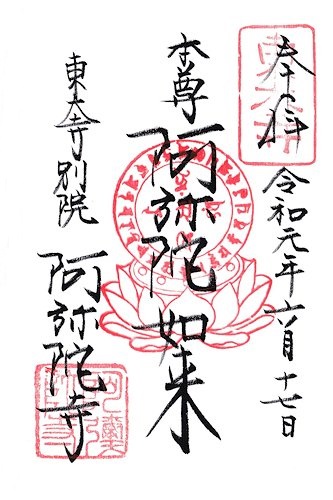 奉拝
令和元年六月十七日
本尊
阿弥陀如来
東大寺別院
阿弥陀寺